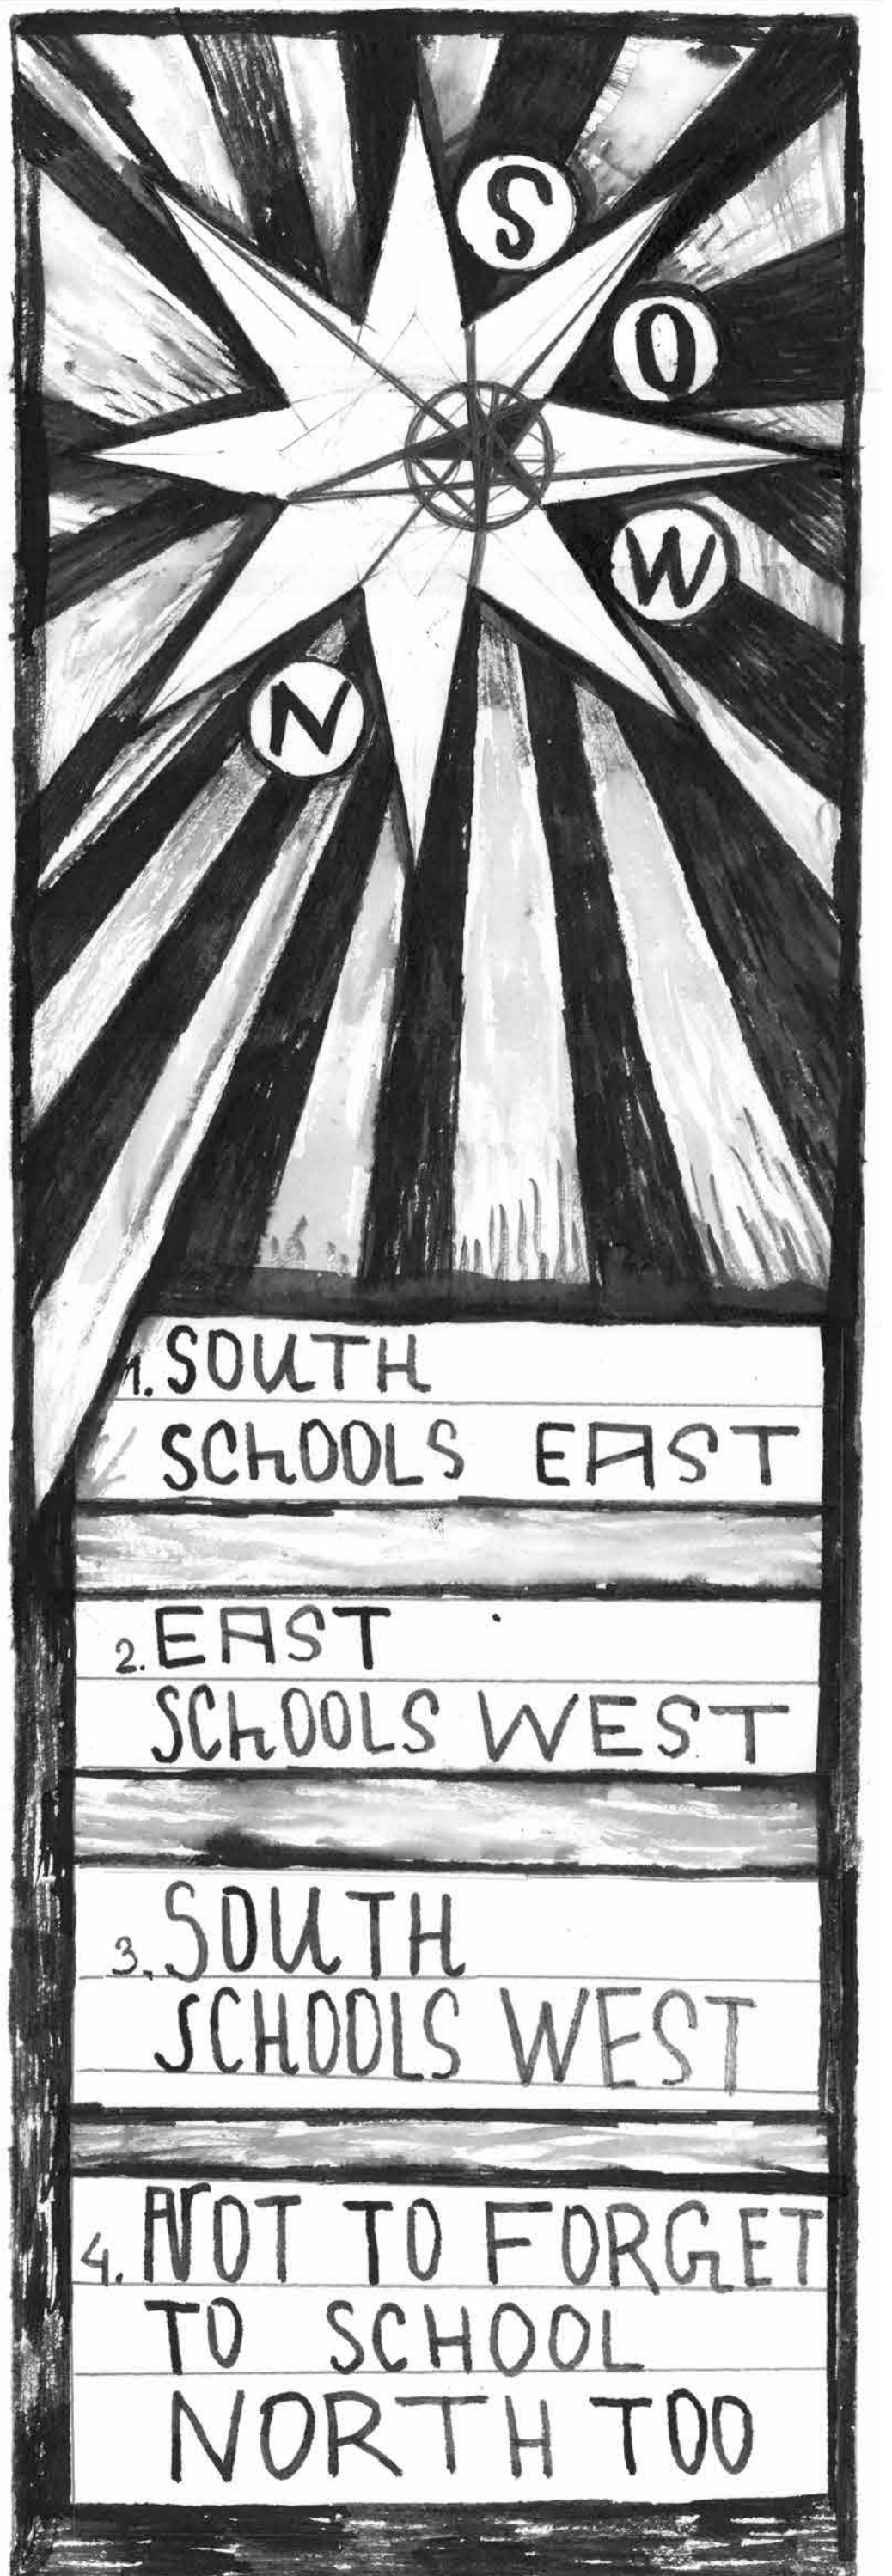 S
O
W
N
1. SOUTH
SCHOOLS EAST
2. EAST
SCHOOLS WEST
3. SOUTH
SCHOOLS WEST
4. NOT TO FORGET
TO SCHOOL
NORTH TOO